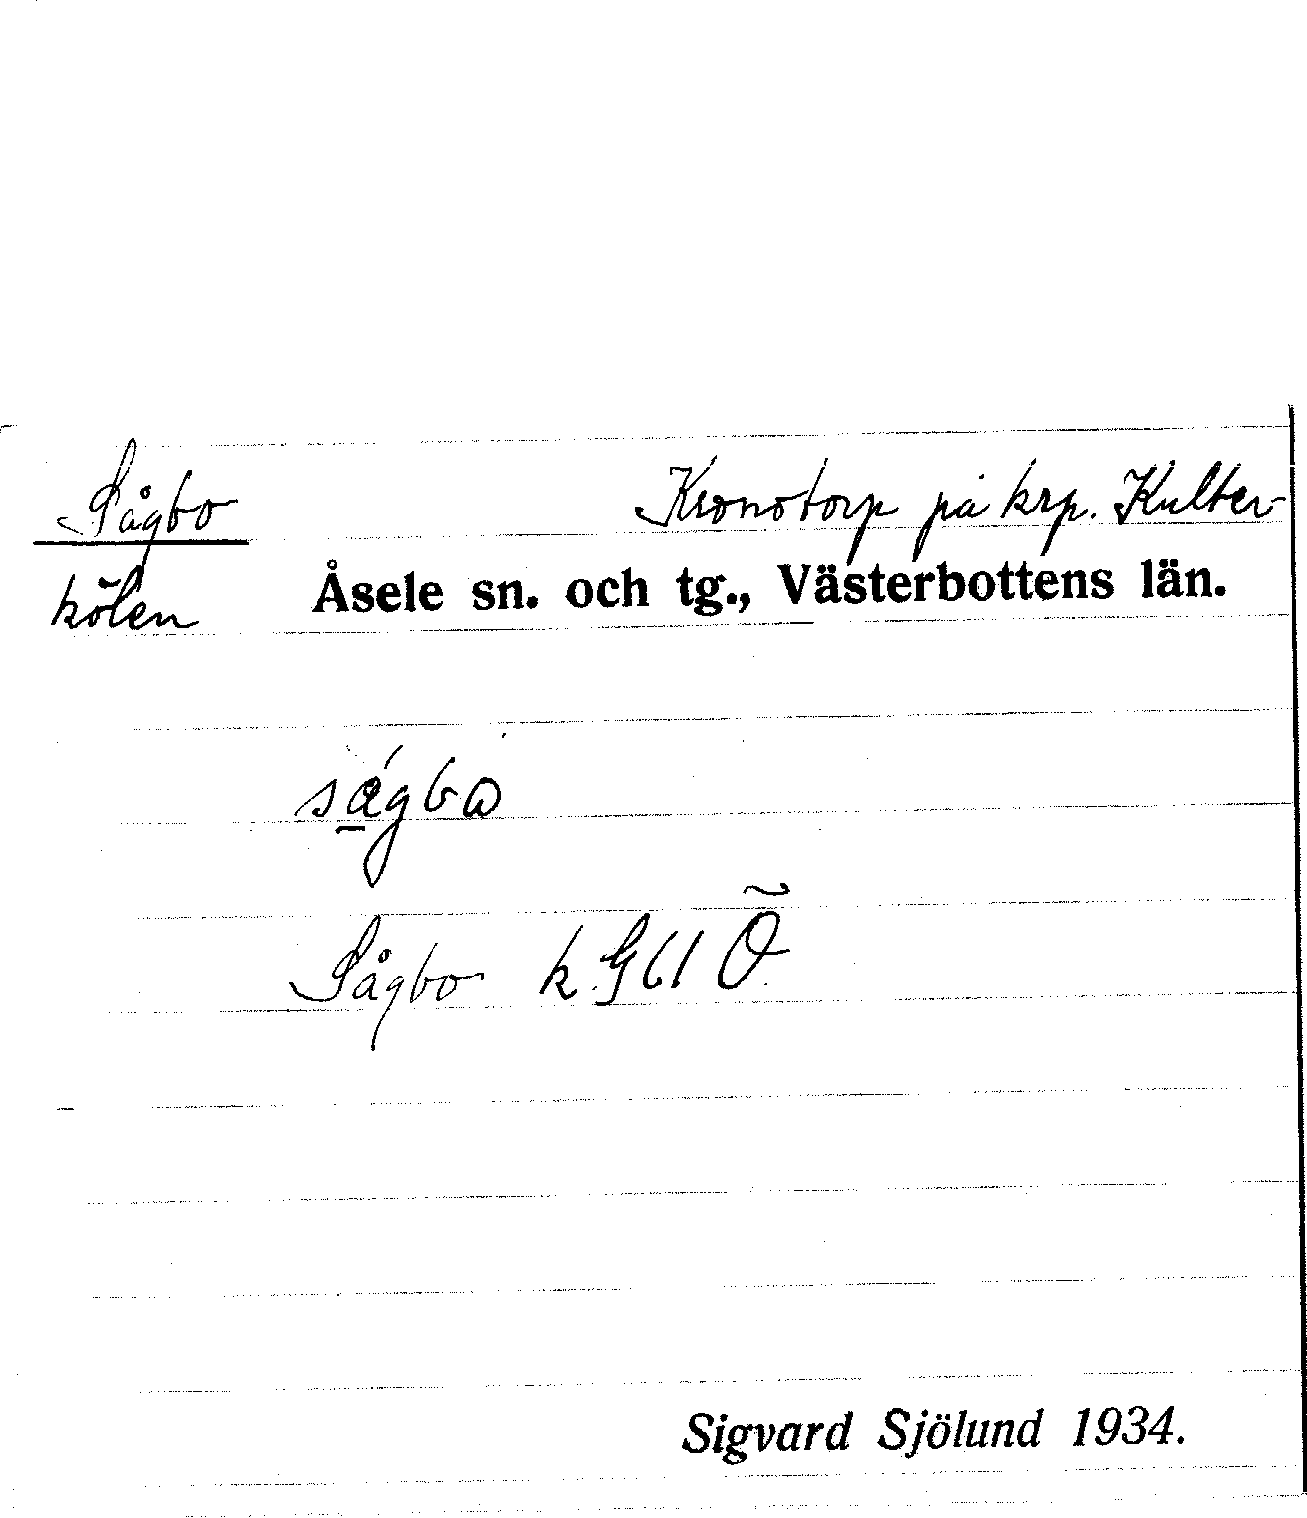 Sågbo Kronotorp på krp. Kulter-
kölen Åsele sn. och tg., Västerbottens län.
Sågbo k. G61 Õ
Sigvard Sjölund 1934.